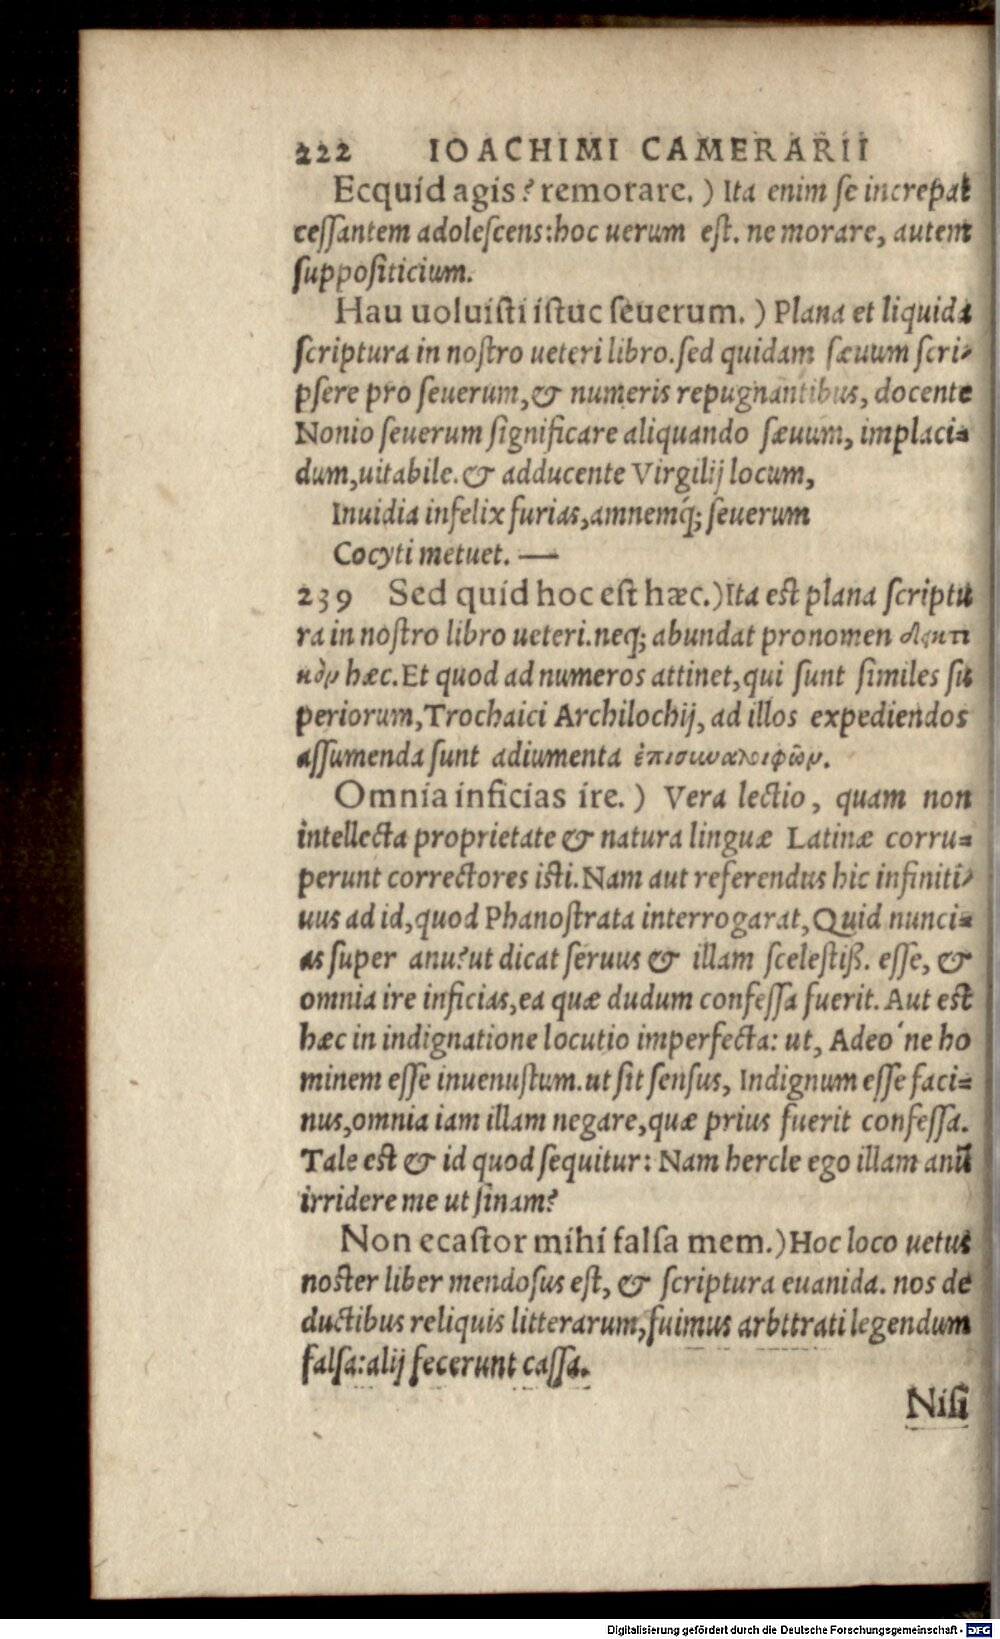 222 IOACHIMI CAMERARII
Ecquid agis? remorare.) Ita enim ſe increpat
ceſſantem adoleſcens: hoc uerum eſt. ne morare, autem
ſuppoſiticium.
Hau uoluiſti iſtuc ſeuerum.) Plana et liquida
ſcriptura in noſtro ueteri libro. ſed quidam ſæuum ſcri-
pſere pro ſeuerum, & numeris repugnantibus, docente
Nonio ſeuerum ſignificare aliquando ſæuum, implaci-
dum, uitabile. & adducente Virgilij locum,
Inuidia infelix furias, amnemq́; ſeuerum
Cocyti metuet. —
239 Sed quid hoc eſt hæc.) Ita eſt plana ſcriptu
ra in noſtro libro ueteri. neq; abundat pronomen δεικτι
κὸν hæc. Et quod ad numeros attinet, qui ſunt ſimiles ſu
periorum, Trochaici Archilochij, ad illos expediendos
aſſumenda ſunt adiumenta ἐπισυναλοιφῶν.
Omnia inficias ire.) Vera lectio, quam non
intellecta proprietate & natura linguæ Latinæ corru-
perunt correctores iſti. Nam aut referendus hic infiniti-
uus ad id, quod Phanoſtrata interrogarat, Quid nunci-
as ſuper anu? ut dicat ſeruus & illam ſceleſtiß. eſſe, &
omnia ire inficias, ea quæ dudum confeſſa fuerit. Aut eſt
hæc in indignatione locutio imperfecta: ut, Adeo´ne ho
minem eſſe inuenuſtum. ut ſit ſenſus, Indignum eſſe faci-
nus, omnia iam illam negare, quæ prius fuerit confeſſa.
Tale eſt & id quod ſequitur: Nam hercle ego illam anū
irridere me ut ſinam?
Non ecaſtor mihi falſa mem.) Hoc loco uetus
noſter liber mendoſus eſt, & ſcriptura euanida. nos de
ductibus reliquis litterarum, fuimus arbttrati legendum
falſa: alij fecerunt caſſa.
Niſi
Digitalisierung gefördert durch die Deutsche Forschungsgemeinschaft - DFG